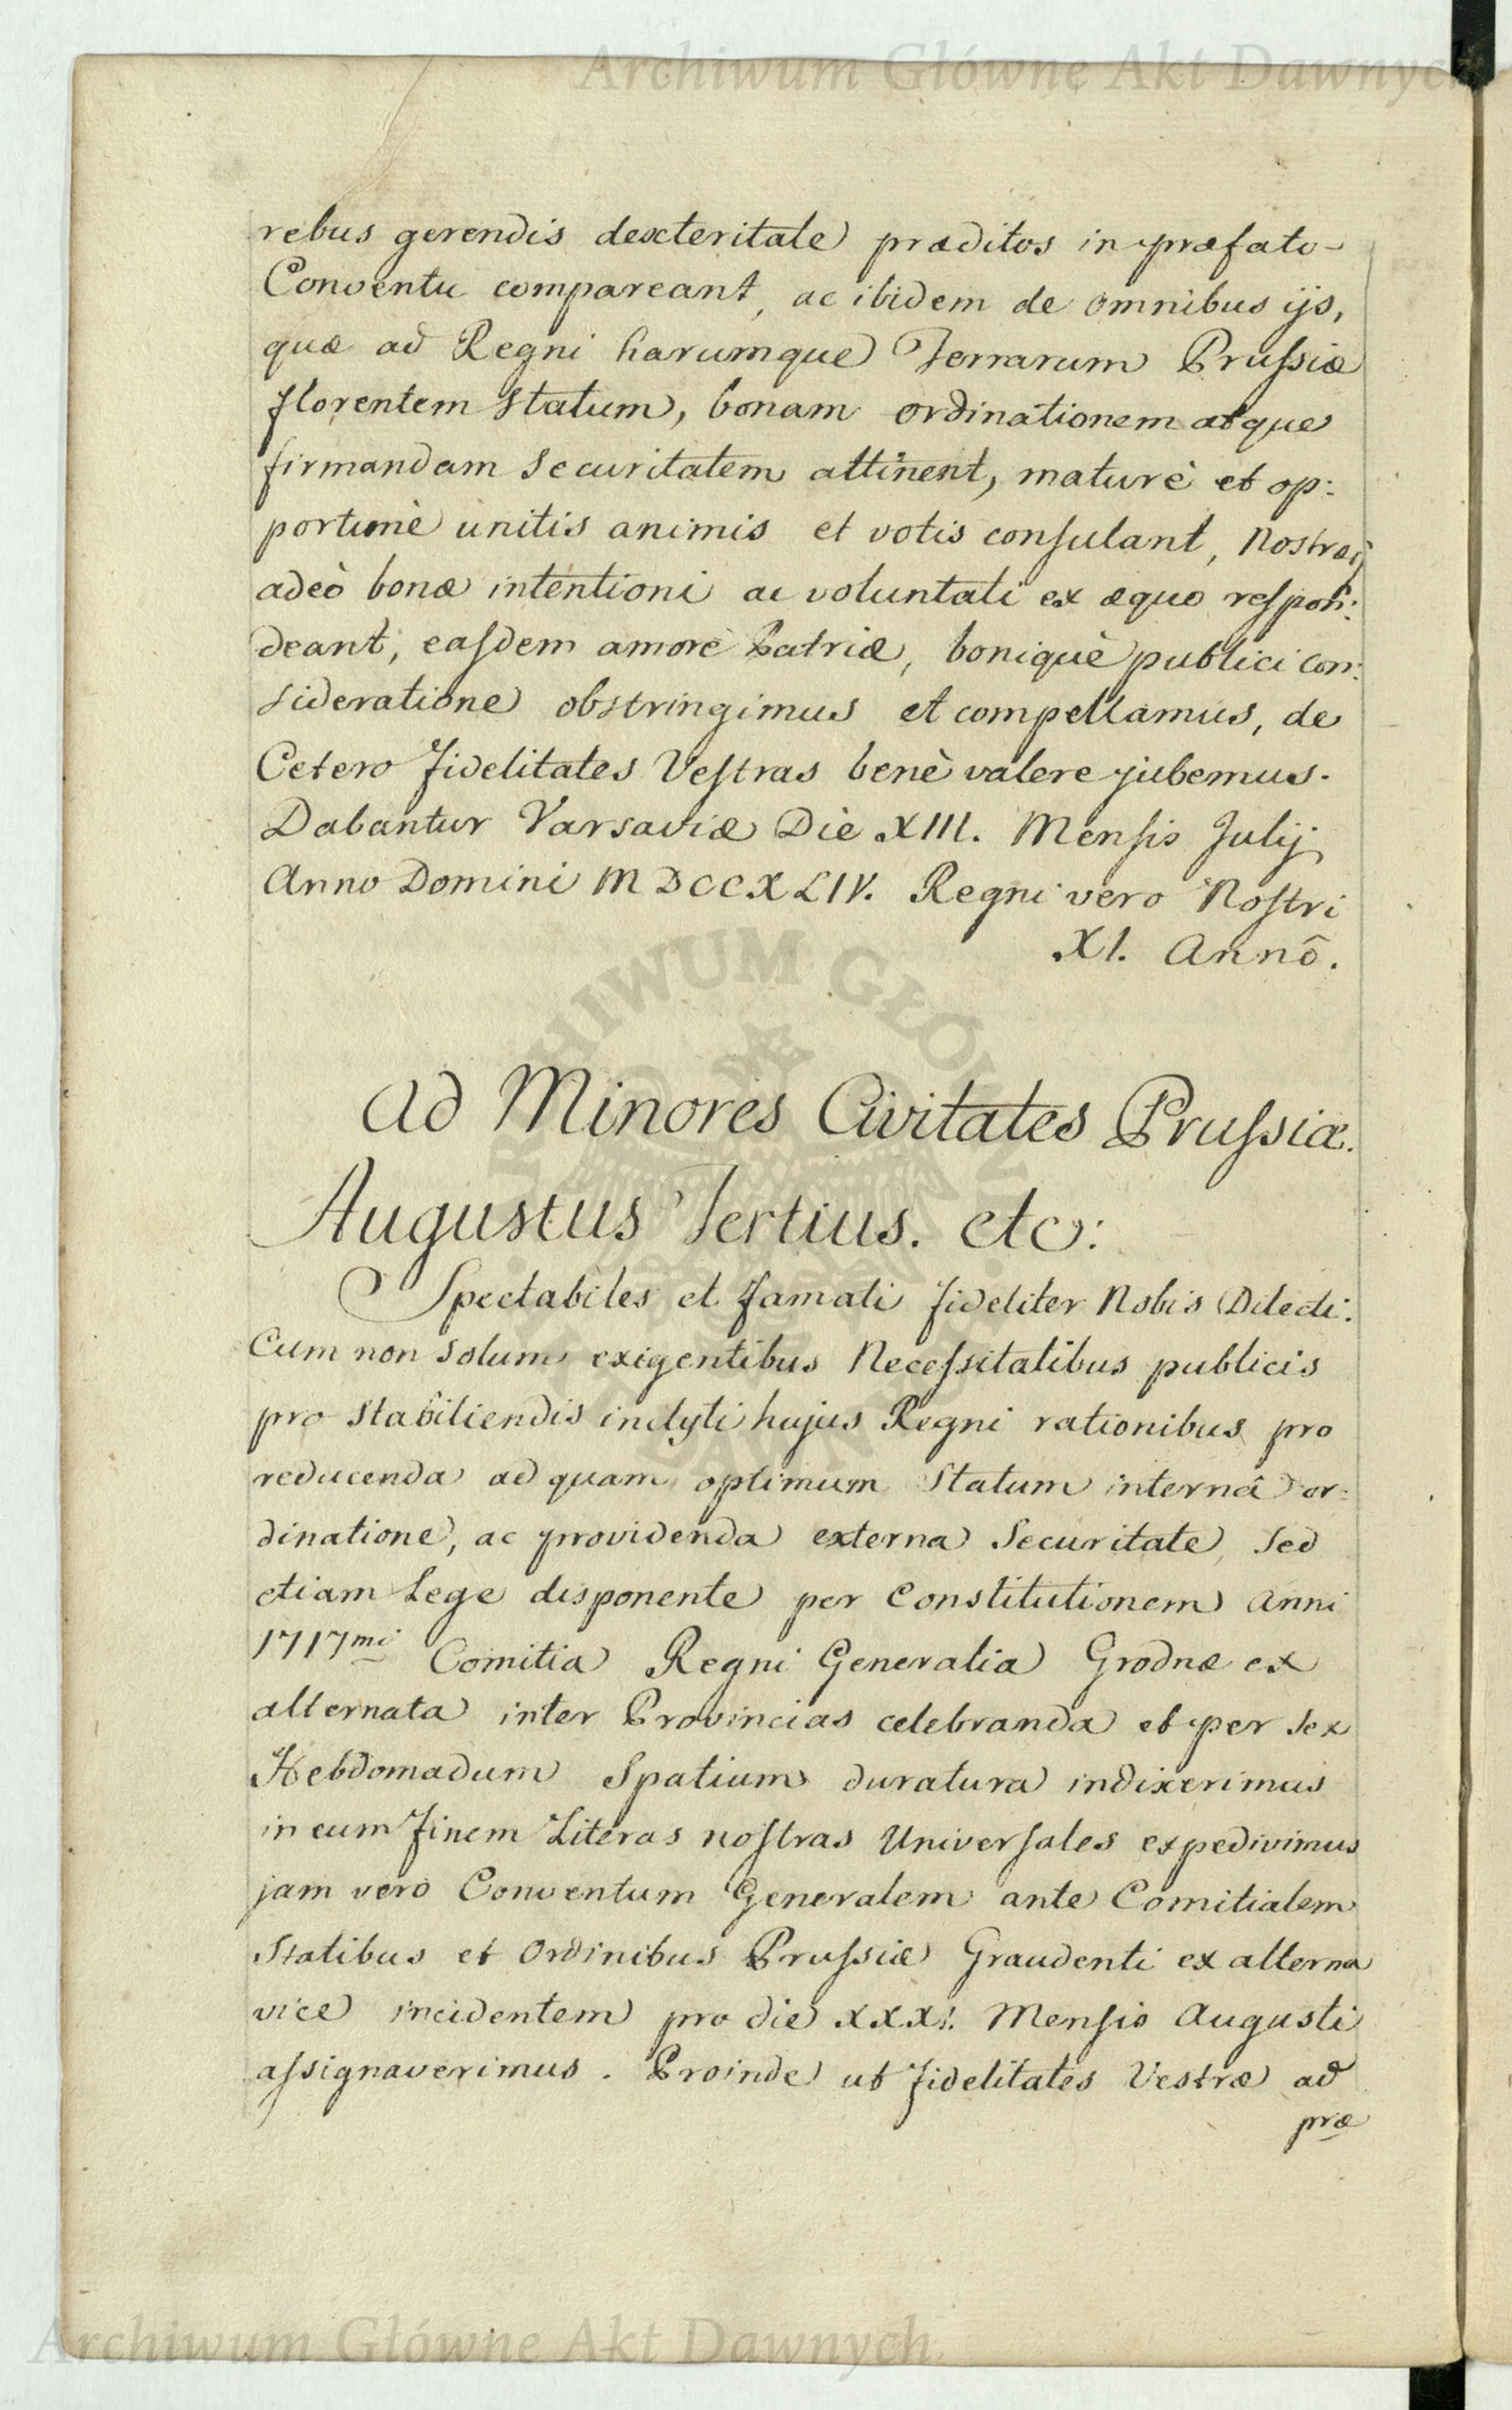 Archiwum Główne Akt Dawnych
rebus gerendis dexteritate præditos in præfato
Conventu compareant, ac ibidem de omnibus ijs,
quæ ad Regni harumque Terrarum Prussiæ
florentem Statum, bonam ordinationem atque
firmandam securitatem attinent, maturè et op:
portunè unitis animis et votis consulant, Nostræq
adeò bonæ intentioni ac voluntati ex æquo respon:
deant, easdem amore Patriæ, boniquè publici con:
sideratione obstringimus et compellamus, de
Cetero Fidelitates Vestras benè valere jubemus.
Dabantur Varsaviæ Die XIII. Mensis Julij
Anno Domini MDCCXLIV. Regni vero Nostri
XI. Annô.
Ad Minores Civitates Prussiæ.
Augustus Tertius. etc:
Spectabiles et Famati Fideliter Nobis Dilecti.
Cum non solum exigentibus Necessitatibus publicis
pro stabiliendis inclyti hujus Regni rationibus pro
reducenda ad quam optimum Statum internâ or:
dinatione, ac providenda externa Securitate, Sed
etiam Lege disponente per Constitutionem Anni
1717mi Comitia Regni Generalia Grodnæ ex
alternata inter Provincias celebranda et per sex
Hebdomadum Spatium duratura indixerimus
in eum Finem Literas nostras Universales expedivimus
jam vero Conventum Generalem ante Comitialem
Statibus et Ordinibus Prussiæ Graudenti ex alterna
vice incidentem pro die XXXI. Mensis Augusti
assignaverimus. Proinde ut Fidelitates Vestræ ad
præ
Archiwum Główne Akt Dawnych